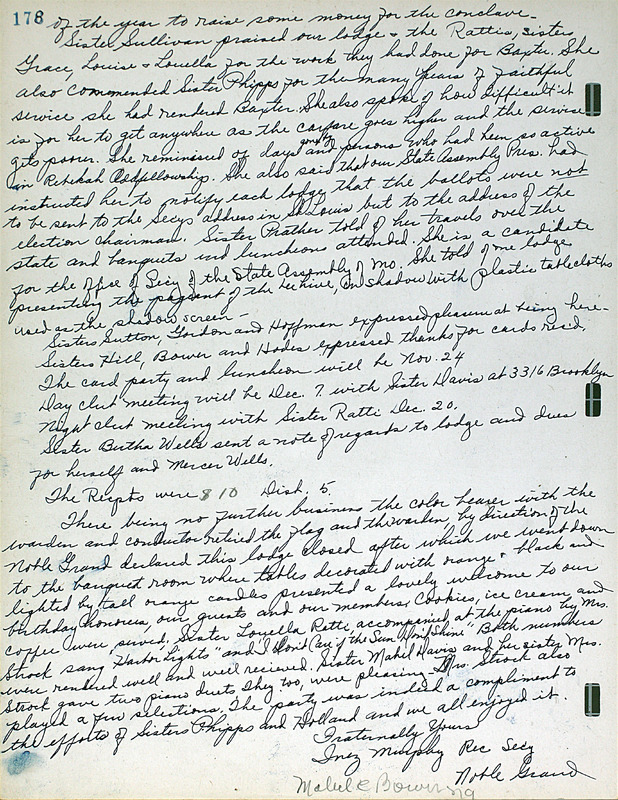 178 of the year to raise some money for the conclave.
Sister Sullivan praised our lodge & the Rattis, Sisters
Grace, Louise & Louella for the work they had done for Baxter. She
also commended Sister Phipps for the many years of faithful
service she had rendered Baxter. She also spoke of how difficult it
is for her to get anywhere as the carfare goes higher and the service
gets poorer. She reminised of days gone by and persons who had been so active
in Rebekah Oddfellowship. She also said that our State Assembly Pres. had
instructed her to notify each lodge that the ballots were not
to be sent to the Secys address in St Louis but to the address of the
election chairman. Sister Prather told of her travels over the
state and banquets and luncheons attended. She is a candidate
for the office of Secy of the State Assembly of Mo. She told of one lodge
presenting the pageant of the beehive, in shadow with plastic tablecloths
used as the shadow screen -
Sisters Sutton, Gordon and Hoffman expressed pleasure at being here -
Sisters Hill, Bower and Hodes expressed thanks for cards rec'd,
The card party and luncheon will be Nov. 24
Day club meeting will be Dec. 7. with Sister Davis at 3316 Brooklyn
Night club meeting with Sister Ratti Dec. 20.
Sister Bertha Wells sent a note of regards to lodge and dues
for herself and Mercer Wells.
The Recpts were 8 10 Disb. 5.
There being no further business the color bearer with the
warden and conductor retired the flag and the warden, by direction of the
Noble Grand declared this lodge closed after which we went down
to the banquet room where tables decorated with orange & black and
lighted by tall orange candles presented a lovely welcome to our
birthday honorees, our guests and our members. Cookies, ice cream, and
coffee were served. Sister Louella Ratti accompanied at the piano by Mrs.
Strock sang "Harbor Lights" and "I Don't Care if the Sun Don't Shine" Both numbers
were rendered well and well recieved. Sister Mabel Davis and her sister Mrs.
Strock gave two piano duets They too, were pleasing - Mrs. Strock also
played a few selections. The party was indeed a compliment to
the efforts of Sisters Phipps and Holland and we all enjoyed it.
Fraternally Yours
Inez Murphy Rec Secy
Noble Grand
Mabel E Bower N G